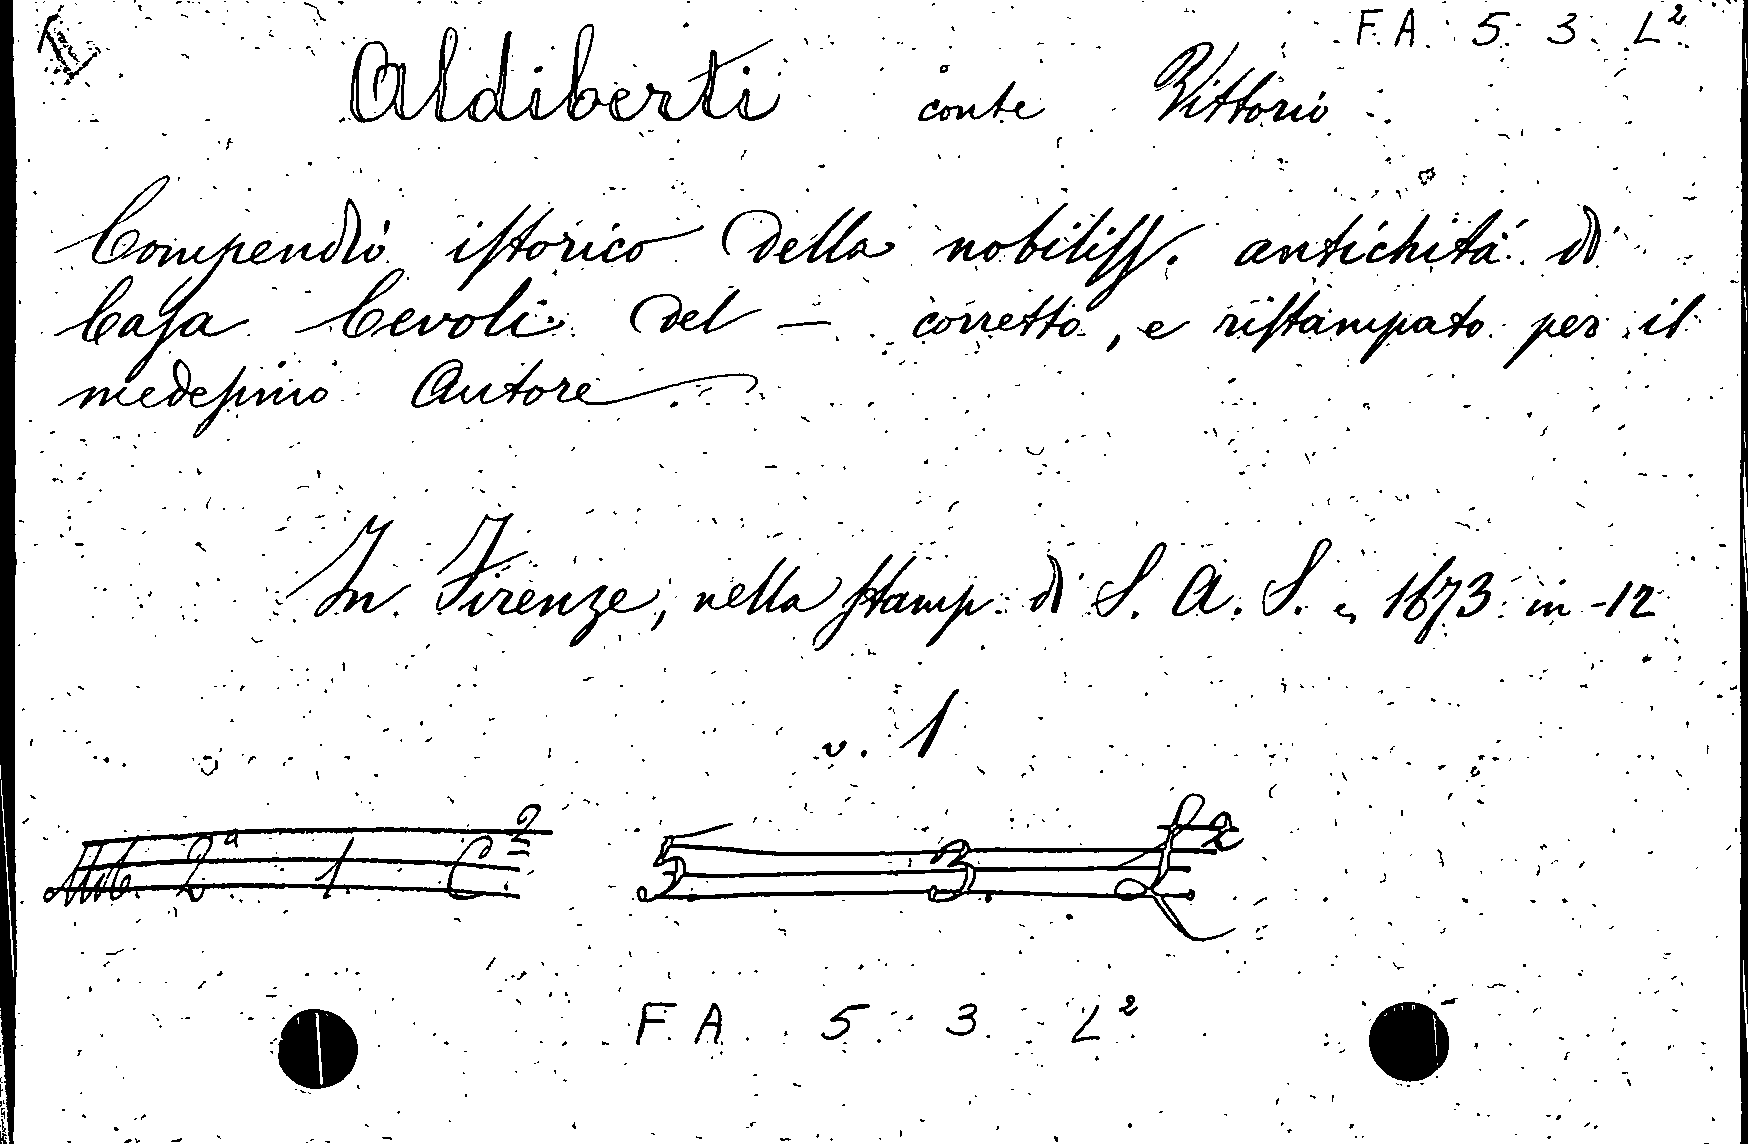 F. A. 5 3 L²
Aldiberti conte Vittorio
Compendio iſtorico della nobiliſſ. antichità di
Caſa Cevoli del — corretto, e riſtampato per il
medeſimo Autore
In Firenze, nella ſtamp. di S. A. S., 1673 in-12
v. 1
Mib. 2ª 1. C² 5 3. L²
F. A. 5 3 L²